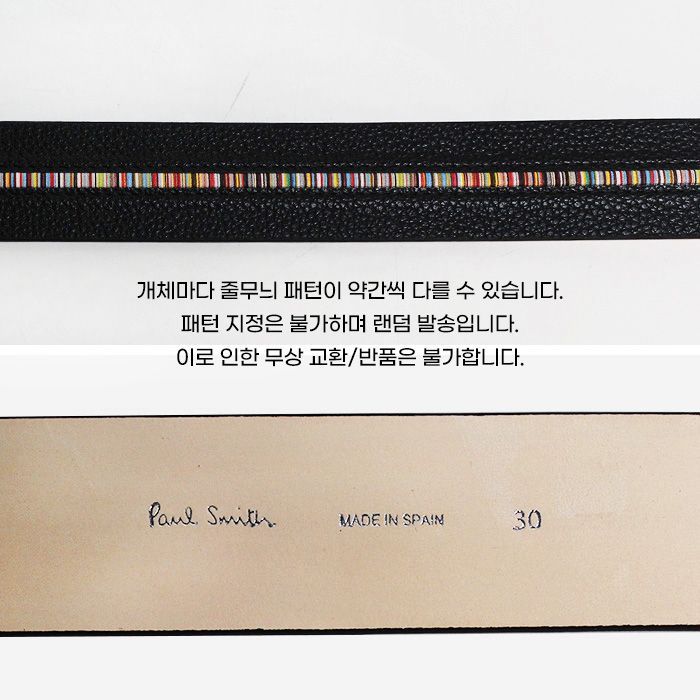 개체마다 줄무늬 패턴이 약간씩 다를 수 있습니다.
패턴 지정은 불가하며 랜덤 발송입니다.
이로 인한 무상 교환/반품은 불가합니다.
Paul Smith MADE IN SPAIN 30